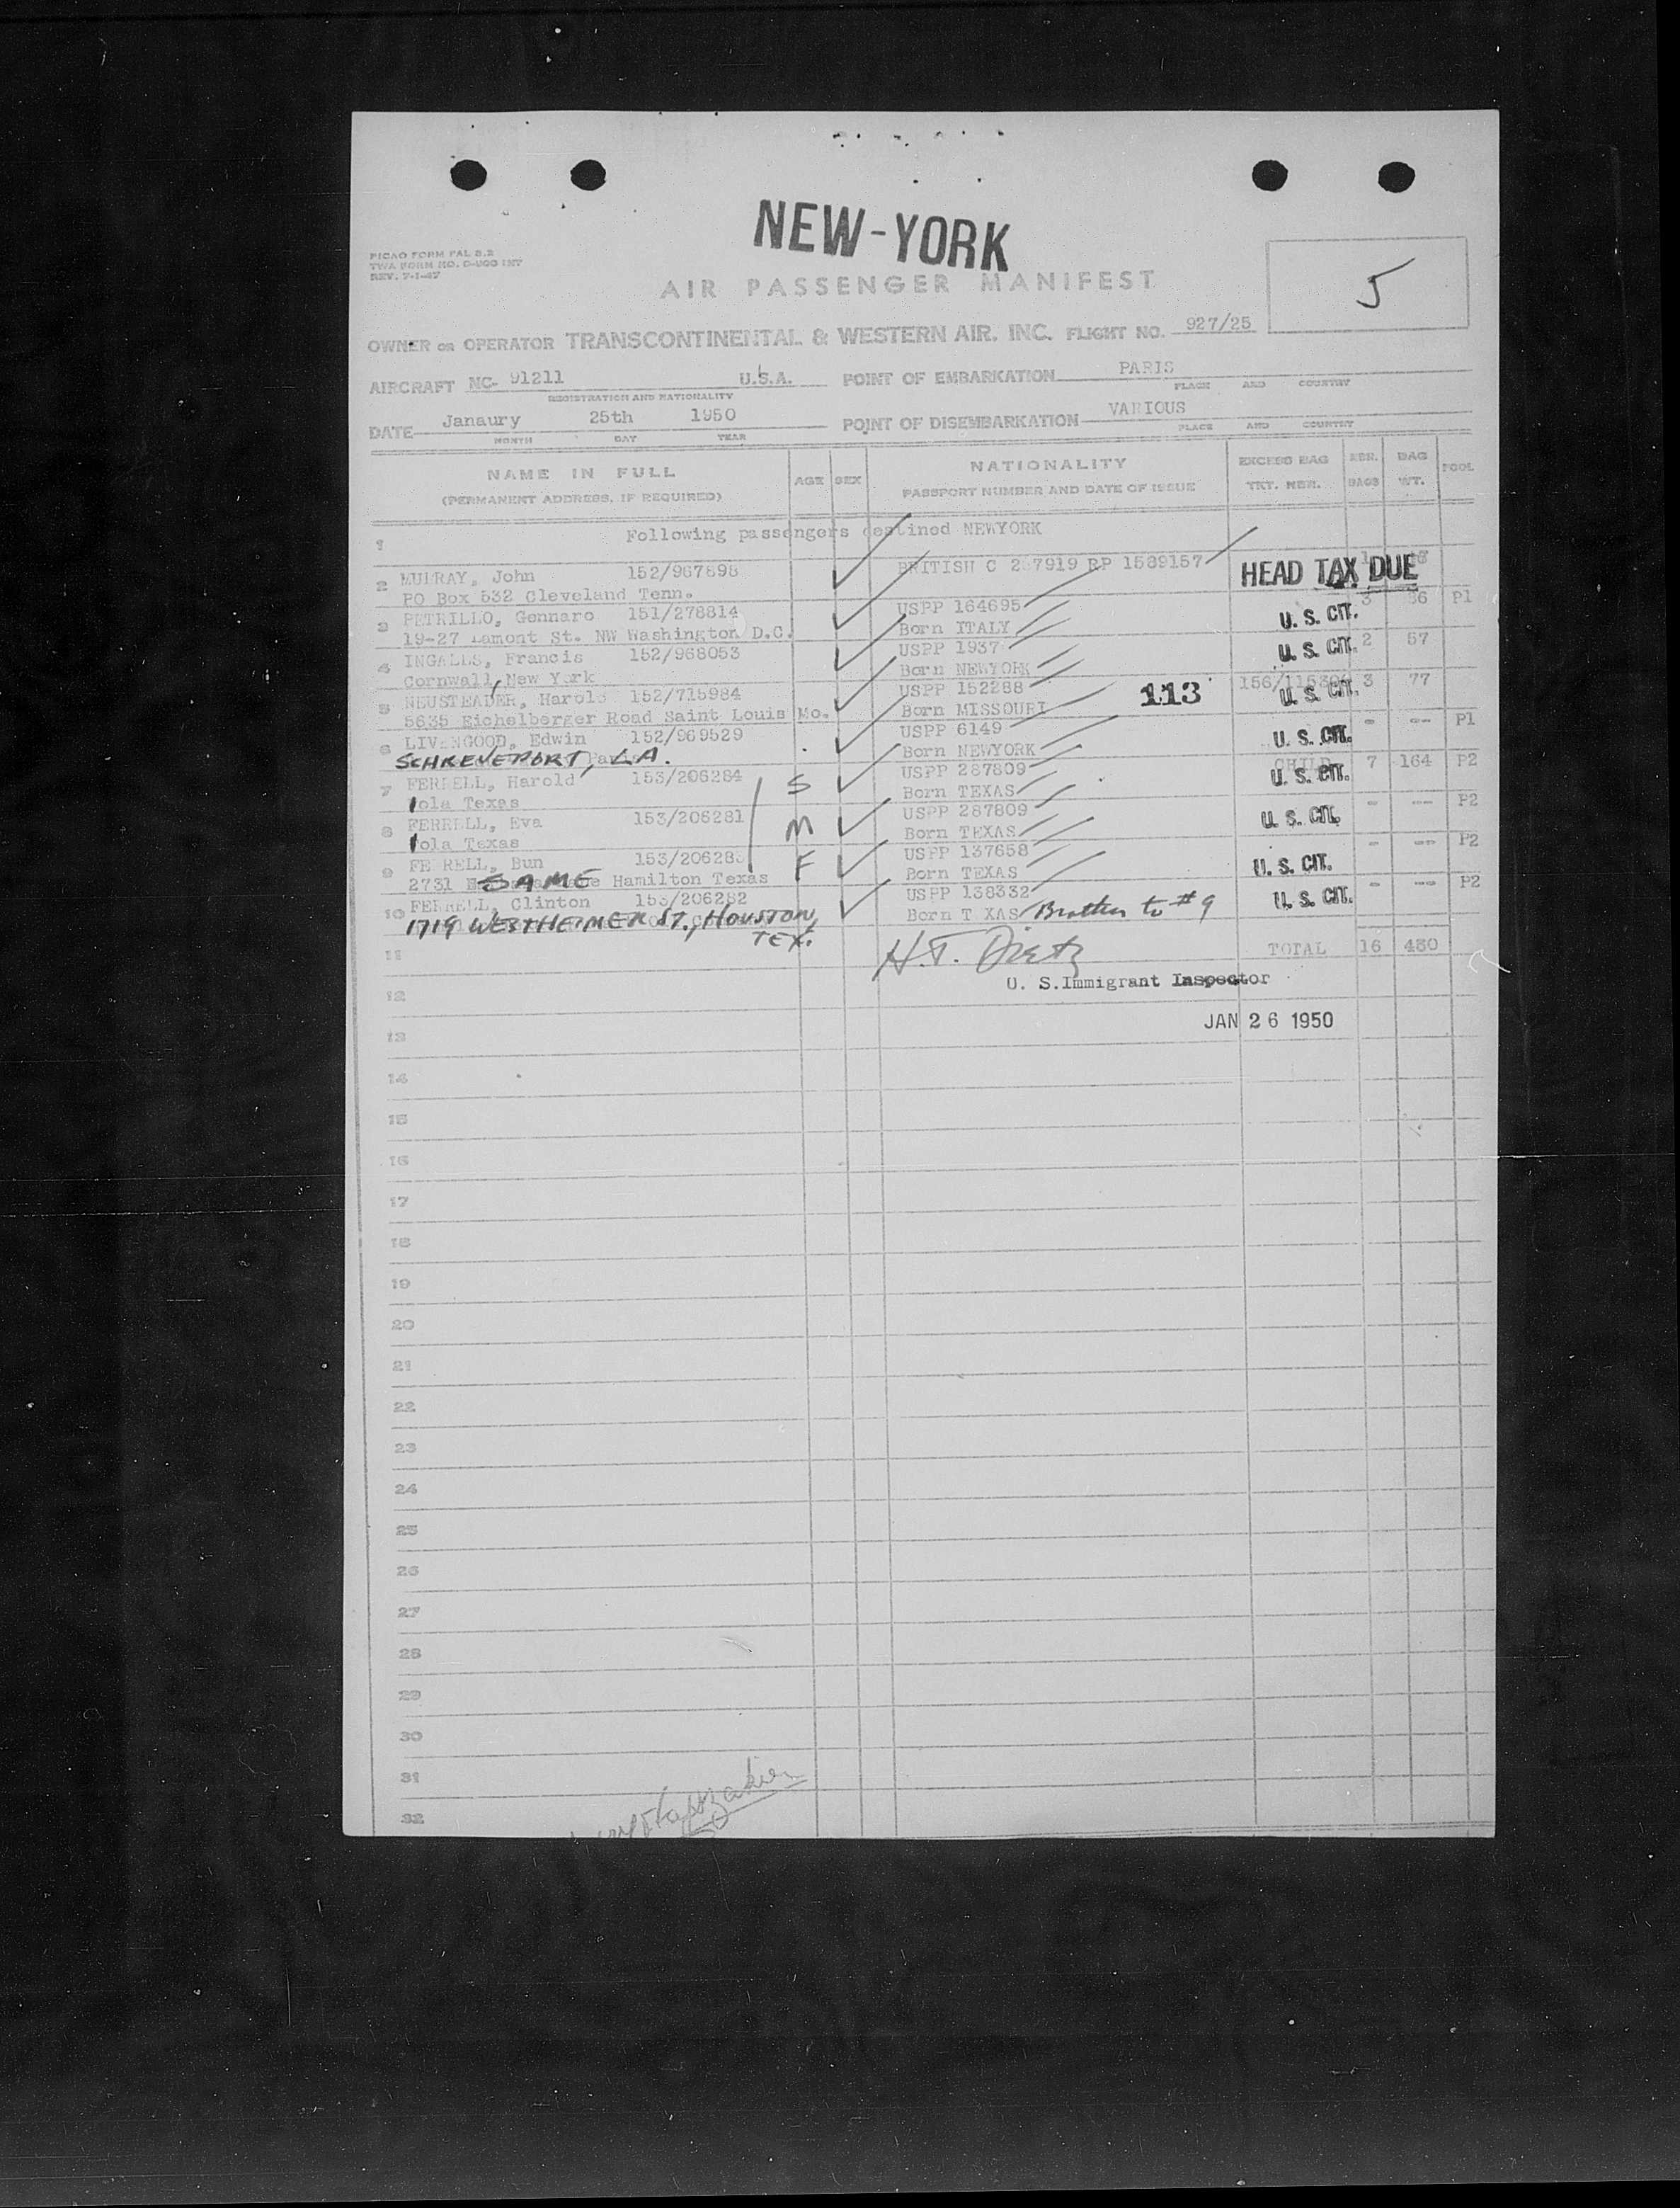 NEW-YORK
PICAO FORM FAL 5.2
TWA FORM NO.
REV. 7-1-47
AIR PASSENGER MANIFEST
5
OWNER OR OPERATOR TRANSCONTINENTAL & WESTERN AIR. INC. FLIGHT NO. 927/25
AIRCRAFT NC- 91211 U.S.A. POINT OF EMBARKATION PARIS
REGISTRATION AND NATIONALITY PLACE AND COUNTRY
DATE Janaury 25th 1950 POINT OF DISEMBARKATION VARIOUS
MONTH DAY YEAR PLACE AND COUNTRY
NAME IN FULL AGE SEX NATIONALITY EXCESS BAG NBR. BAG POOL
(PERMANENT ADDRESS, IF REQUIRED) PASSPORT NUMBER AND DATE OF ISSUE TKT. NBR. BAGS WT.
1 Following passengers destined NEWYORK
2 MURRAY, John 152/967898 BRITISH C RP 1589157 HEAD TAX DUE
PO Box 532 Cleveland Tenn.
3 PETRILLO, Gennaro 151/278814 USPP 164695 U. S. CIT. 3 86 P1
19-27 Lamont St. NW Washington D.C. Born ITALY
4 INGALLS, Francis 152/968053 USPP 1937 U. S. CIT. 2 57
Cornwall, New York Born NEWYORK
5 NEUSTEADER, Harold 152/715984 USPP 152288 113 U. S. CIT. 3 77
5635 Eichelberger Road Saint Louis Mo. Born MISSOURI
6 LIVENGOOD, Edwin 152/969529 USPP 6149 U. S. CIT. - -- P1
SCHREVEPORT, LA. Born NEWYORK
7 FERRELL, Harold 153/206284 S USPP 287809 CHILD U. S. CIT. 7 164 P2
Iola Texas Born TEXAS
8 FERRELL, Eva 153/206281 M USPP 287809 U. S. CIT. - --- P2
Iola Texas Born TEXAS
9 FERRELL, Bun F USPP 137658 U. S. CIT. - --- P2
2731 SAME Hamilton Texas Born TEXAS
10 FERRELL, Clinton 153/206282 USPP 138332 U. S. CIT. - --- P2
1719 WESTHEIMER ST., HOUSTON, TEX. Born T XAS Brother to #9
11 H.T. Dietz TOTAL 16 450
U. S.Immigrant Inspector
12
JAN 26 1950
13
14
15
16
17
18
19
20
21
22
23
24
25
26
27
28
29
30
31
32